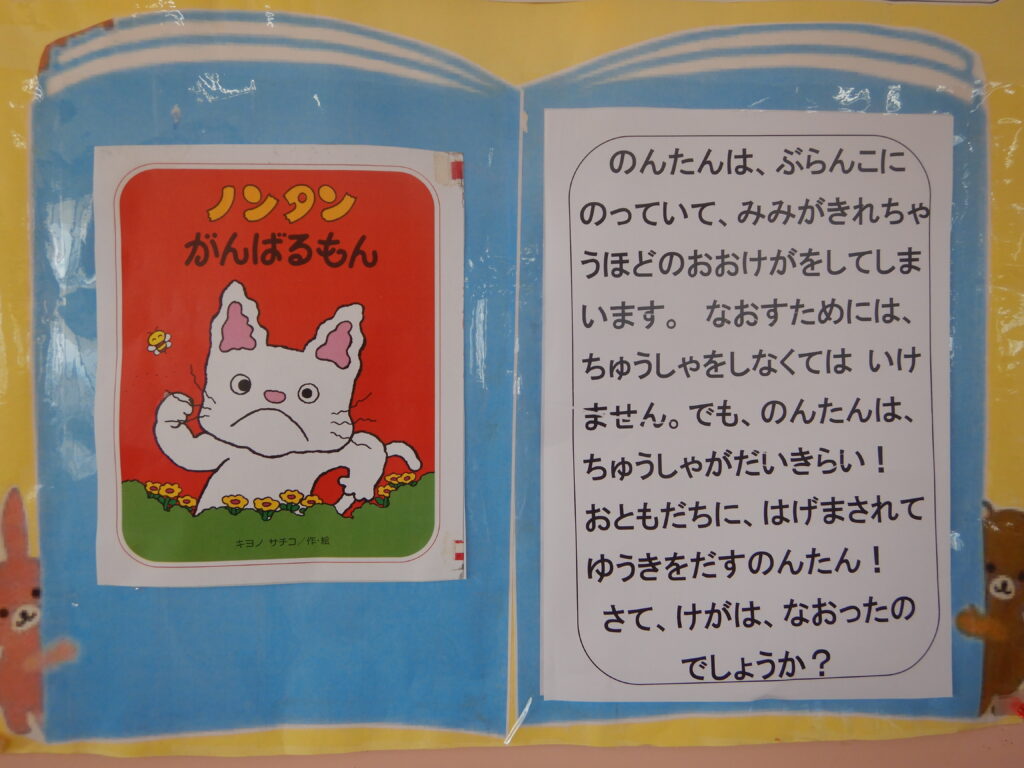 ノンタン
がんばるもん
キヨノ サチコ／作・絵
のんたんは、ぶらんこに
のっていて、みみがきれちゃ
うほどのおおけがをしてしま
います。 なおすためには、
ちゅうしゃをしなくては いけ
ません。でも、のんたんは、
ちゅうしゃがだいきらい！
おともだちに、はげまされて
ゆうきをだすのんたん！
さて、けがは、なおったの
でしょうか？